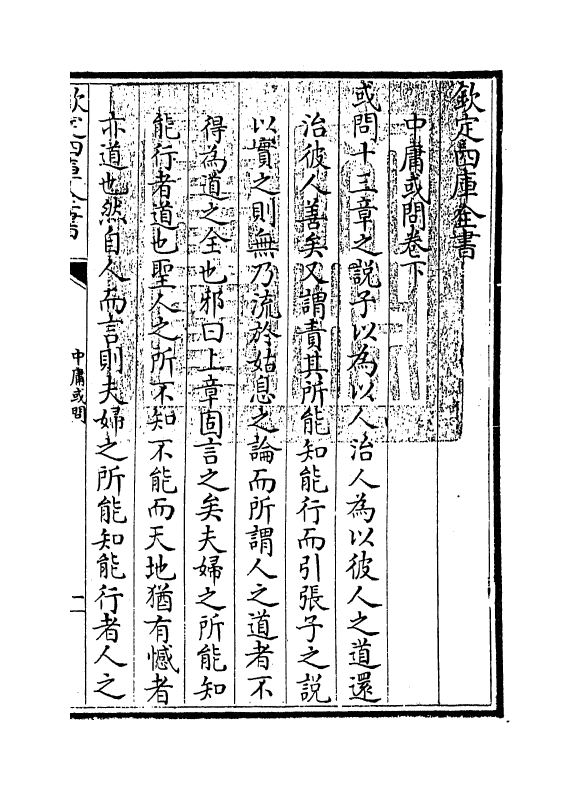 欽定四庫全書
中庸或問卷下
或問十三章之説子以為以人治人為以彼人之道還
治彼人善矣又謂責其所能知能行而引張子之説
以實之則無乃流於姑息之論而所謂人之道者不
得為道之全也邪曰上章固言之矣夫婦之所能知
能行者道也聖人之所不知不能而天地猶有憾者
亦道也然自人而言則夫婦之所能知能行者人之
欽定四庫全書
中庸或問